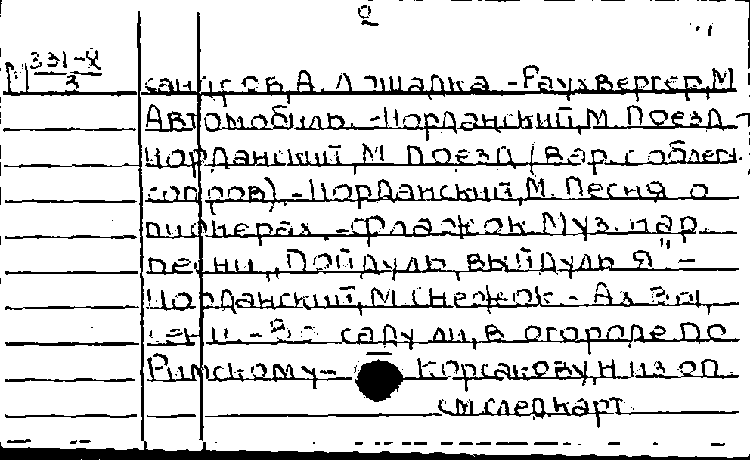 2
М 331-8
3
сандров, А. Лошадка. - Раухвергер, М
Автомобиль. - Иорданский, М. Поезд -
Иорданский, М Поезд (Вар. с облегч.
сопров). - Иорданский, М. Песня о
пионерах. - Флажок Муз. пар.
песни „Пойду ль, выйду ль я" -
Иорданский, М Снежок. - Ах вы,
сени. - Во саду ли, в огороде По
Римскому - Корсакову, Н из оп.
см след карт